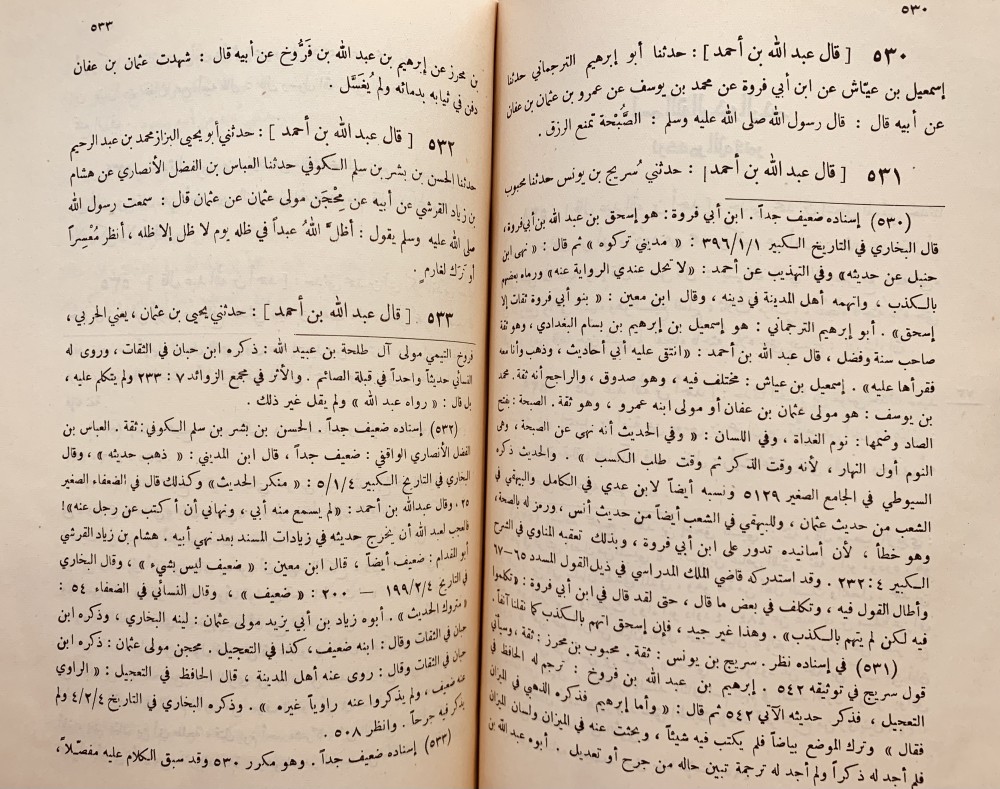 ٥٣٠
٥٣٠ [ قال عبد الله بن أحمد ] : حدثنا أبو إبرهيم الترجماني حدثنا
إسمعيل بن عيّاش عن ابن أبي فروة عن محمد بن يوسف عن عمرو بن عثمان بن عفان
عن أبيه قال : قال رسول الله صلى الله عليه وسلم : الصُّبْحة تمنع الرزق .
٥٣١ [ قال عبد الله بن أحمد ] : حدثني سُريج بن يونس حدثنا محبوب
(٥٣٠) إسناده ضعيف جداً . ابن أبي فروة : هو إسحق بن عبد الله بن أبي فروة ،
قال البخاري في التاريخ الكبير ٣٩٦/١/١ : « مديني تركوه » ثم قال : « نهى ابن
حنبل عن حديثه » وفي التهذيب عن أحمد : « لا تحل عندي الرواية عنه » ورماه بعضهم
بالكذب ، واتهمه أهل المدينة في دينه ، وقال ابن معين : « بنو أبي فروة ثقات إلا
إسحق » . أبو إبرهيم الترجماني : هو إسمعيل بن إبرهيم بن بسام البغدادي ، وهو ثقة
صاحب سنة وفضل ، قال عبد الله بن أحمد : « انتقى عليه أبي أحاديث ، وذهب وأنا معه
فقرأها عليه » . إسمعيل بن عياش : مختلف فيه ، وهو صدوق ، والراجح أنه ثقة . محمد
بن يوسف : هو مولى عثمان بن عفان أو مولى ابنه عمرو ، وهو ثقة . الصبحة : بفتح
الصاد وضمها : نوم الغداة ، وفي اللسان : « وفي الحديث أنه نهى عن الصبحة ، وهي
النوم أول النهار ، لأنه وقت الذكر ثم وقت طلب الكسب » . والحديث ذكره
السيوطي في الجامع الصغير ٥١٢٩ ونسبه أيضاً لابن عدي في الكامل والبيهقي في
الشعب من حديث عثمان ، وللبيهقي في الشعب أيضاً من حديث أنس ، ورمز له بالصحة ،
وهو خطأ ، لأن أسانيده تدور على ابن أبي فروة ، وبذلك تعقبه المناوي في الشرح
الكبير ٤ : ٢٣٢ . وقد استدركه قاضي الملك المدراسي في ذيل القول المسدد ٦٥–٦٧
وأطال القول فيه ، وتكلف في بعض ما قال ، حتى لقد قال في ابن أبي فروة : « تكلموا
فيه لكن لم يتهم بالكذب » . وهذا غير جيد ، فإن إسحق اتهم بالكذب كما نقلنا آنفاً .
(٥٣١) في إسناده نظر . سريج بن يونس : ثقة . محبوب بن محرز : ثقة ، وسيأتي
قول سريج في توثيقه ٥٤٢ . إبرهيم بن عبد الله بن فروخ : ترجم له الحافظ في
التعجيل ، فذكر حديثه الآتي ٥٤٢ ثم قال : « وأما إبرهيم فذكره الذهبي في الميزان
فقال » وترك الموضع بياضاً فلم يكتب فيه شيئاً ، وبحثت عنه في الميزان ولسان الميزان
فلم أجد له ذكراً ولم أجد له ترجمة تبين حاله من جرح أو تعديل . أبوه عبد الله بن
٥٣٣
بن محرز عن إبرهيم بن عبد الله بن فَرُّوخ عن أبيه قال : شهدت عثمان بن عفان
دفن في ثيابه بدمائه ولم يُغَسَّل .
٥٣٢ [ قال عبد الله بن أحمد ] : حدثني أبو يحيى البزاز محمد بن عبد الرحيم
حدثنا الحسن بن بشر بن سلم الكوفي حدثنا العباس بن الفضل الأنصاري عن هشام
بن زياد القرشي عن أبيه عن مِحْجَن مولى عثمان عن عثمان قال : سمعت رسول الله
صلى الله عليه وسلم يقول : أظلَّ اللهُ عبداً في ظله يوم لا ظل إلا ظله ، أنظر مُعْسِراً
أو ترَك لغارمٍ .
٥٣٣ [ قال عبد الله بن أحمد ] : حدثني يحيى بن عثمان ، يعني الحربي ،
فروخ التيمي مولى آل طلحة بن عبيد الله : ذكره ابن حبان في الثقات ، وروى له
النسائي حديثاً واحداً في قبلة الصائم . والأثر في مجمع الزوائد ٧ : ٢٣٣ ولم يتكلم عليه ،
بل قال : « رواه عبد الله » ولم يقل غير ذلك .
(٥٣٢) إسناده ضعيف جداً . الحسن بن بشر بن سلم الكوفي : ثقة . العباس بن
الفضل الأنصاري الواقفي : ضعيف جداً ، قال ابن المديني : « ذهب حديثه » ، وقال
البخاري في التاريخ الكبير ٥/١/٤ : « منكر الحديث » وكذلك قال في الضعفاء الصغير
٢٥ ، وقال عبد الله بن أحمد : « لم يسمع منه أبي ، ونهاني أن أكتب عن رجل عنه » !
فالعجب لعبد الله أن يخرج حديثه في زيادات المسند بعد نهي أبيه . هشام بن زياد القرشي
أبو المقدام : ضعيف أيضاً ، قال ابن معين : « ضعيف ليس بشيء » ، وقال البخاري
في التاريخ ١٩٩/٢/٤ — ٢٠٠ : « ضعيف » ، وقال النسائي في الضعفاء ٥٤ :
« متروك الحديث » . أبوه زياد بن أبي يزيد مولى عثمان : لينه البخاري ، وذكره ابن
حبان في الثقات وقال : ابنه ضعيف ، كذا في التعجيل . محجن مولى عثمان : ذكره ابن
حبان في الثقات وقال : روى عنه أهل المدينة ، قال الحافظ في التعجيل : « الراوي
عنه ضعيف ، ولم يذكروا عنه راوياً غيره » . وذكره البخاري في التاريخ ٤/٢/٤ ولم
يذكر فيه جرحاً . وانظر ٥٠٨ .
(٥٣٣) إسناده ضعيف جداً . وهو مكرر ٥٣٠ وقد سبق الكلام عليه مفصلاً ،